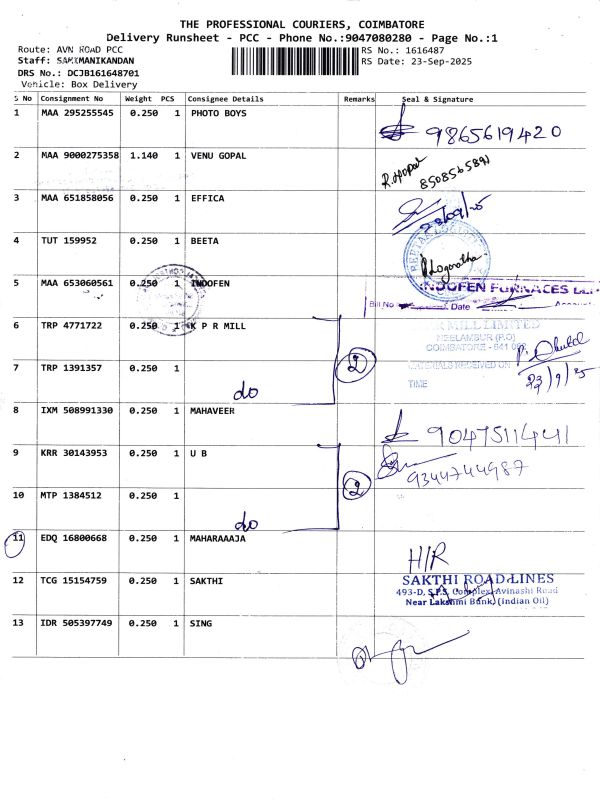 THE PROFESSIONAL COURIERS, COIMBATORE
Delivery Runsheet - PCC - Phone No.:9047080280 - Page No.:1
Route: AVN ROAD PCC
RS No.: 1616487
Staff: SAKMANIKANDAN
RS Date: 23-Sep-2025
DRS No.: DCJB161648701
Vehicle: Box Delivery
S No Consignment No Weight PCS Consignee Details Remarks Seal & Signature
1 MAA 295255545 0.250 1 PHOTO BOYS
9865619420
2 MAA 9000275358 1.140 1 VENU GOPAL
8508565891
3 MAA 651858056 0.250 1 EFFICA
23/09/25
4 TUT 159952 0.250 1 BEETA
5 MAA 653060561 0.250 1 INDOFEN
INDOFEN FURNACES
Bill No Date
6 TRP 4771722 0.250 1 K P R MILL
MILL LIMITED
NEELAMBUR (P.O)
COIMBATORE - 641
2
7 TRP 1391357 0.250 1
do
MATERIALS RECEIVED ON
TIME
23/9/25
8 IXM 508991330 0.250 1 MAHAVEER
9047511441
9 KRR 30143953 0.250 1 U B
9344744987
2
10 MTP 1384512 0.250 1
do
11 EDQ 16800668 0.250 1 MAHARAAAJA
H/R
12 TCG 15154759 0.250 1 SAKTHI
SAKTHI ROAD LINES
493-D, S.F.S. Complex, Avinashi Road
Near Lakshmi Bank, (Indian Oil)
13 IDR 505397749 0.250 1 SING